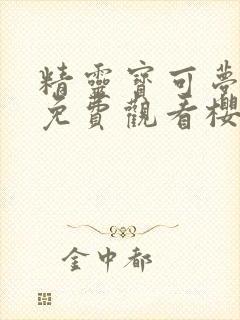 精靈寶可夢
免費觀看櫻
金中都